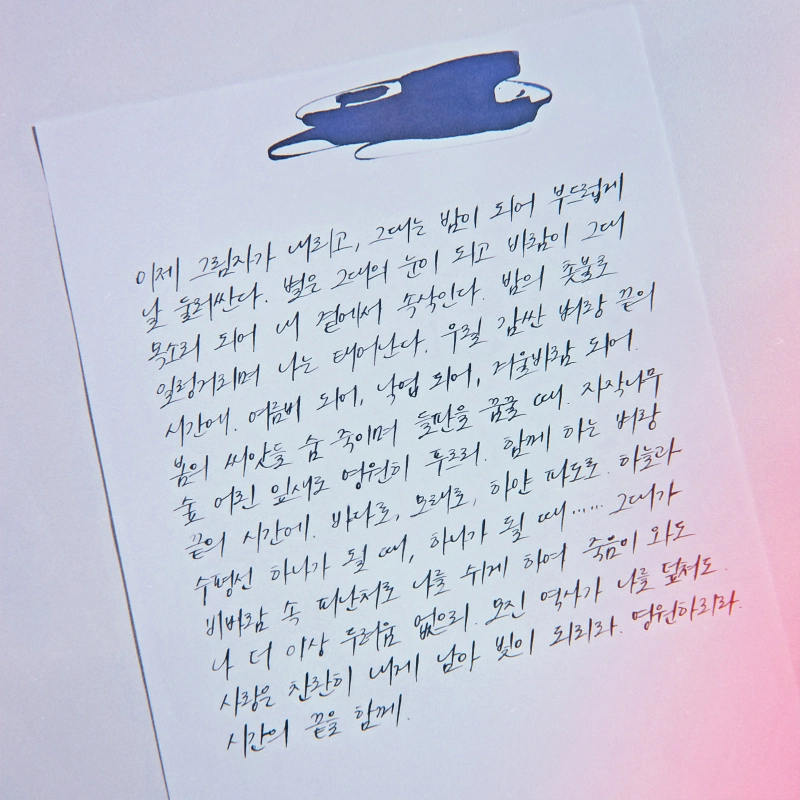 이제 그림자가 내리고, 그대는 밤이 되어 부드럽게
날 둘러싼다. 별은 그대의 눈이 되고 바람이 그대
목소리 되어 내 곁에서 속삭인다. 밤의 촛불로
일렁거리며 나는 태어난다. 우릴 감싼 벼랑 끝의
시간에. 여름비 되어, 낙엽 되어, 겨울바람 되어.
봄의 씨앗들 숨 죽이며 들판을 꿈꿀 때. 자작나무
숲 어린 잎새로 영원히 푸르리. 함께 하는 벼랑
끝의 시간에. 바다로, 모래로, 하얀 파도로. 하늘과
수평선 하나가 될 때, 하나가 될 때…… 그대가
비바람 속 피난처로 나를 쉬게 하여 죽음이 와도
나 더 이상 두려움 없으리. 모진 역사가 나를 덮쳐도
사랑은 찬란히 내게 남아 빛이 되리라. 영원하리라.
시간의 끝을 함께.